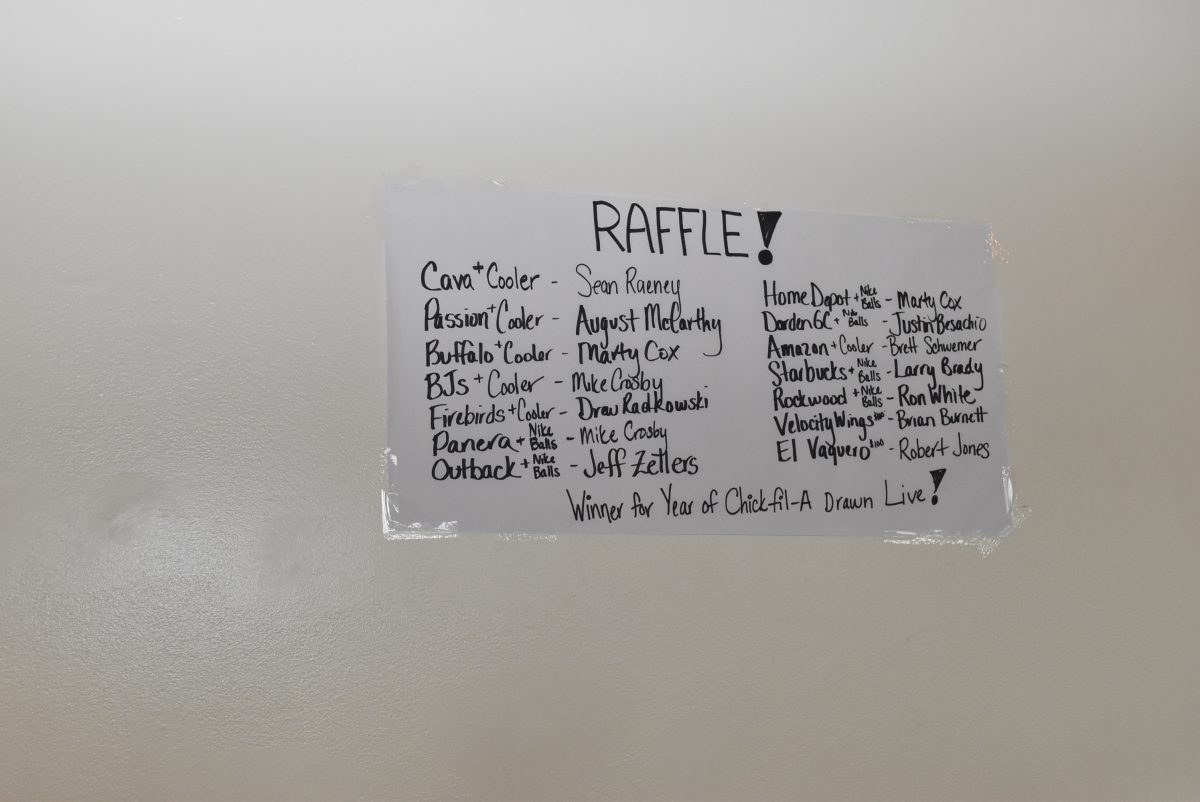 RAFFLE!
Cava + Cooler - Sean Raeney
Passion + Cooler - August McCarthy
Buffalo + Cooler - Marty Cox
BJs + Cooler - Mike Crosby
Firebirds + Cooler - Drew Radkowski
Panera + Nike Balls - Mike Crosby
Outback + Nike Balls - Jeff Zetlers
Home Depot + Nike Balls - Marty Cox
Darden GC + Nike Balls - Justin Besachio
Amazon + Cooler - Brett Schwemer
Starbucks + Nike Balls - Larry Brady
Rockwood + Nike Balls - Ron White
Velocity Wings - Brian Burnett
El Vaquero $100 - Robert Jones
Winner for Year of Chick-fil-A Drawn Live!